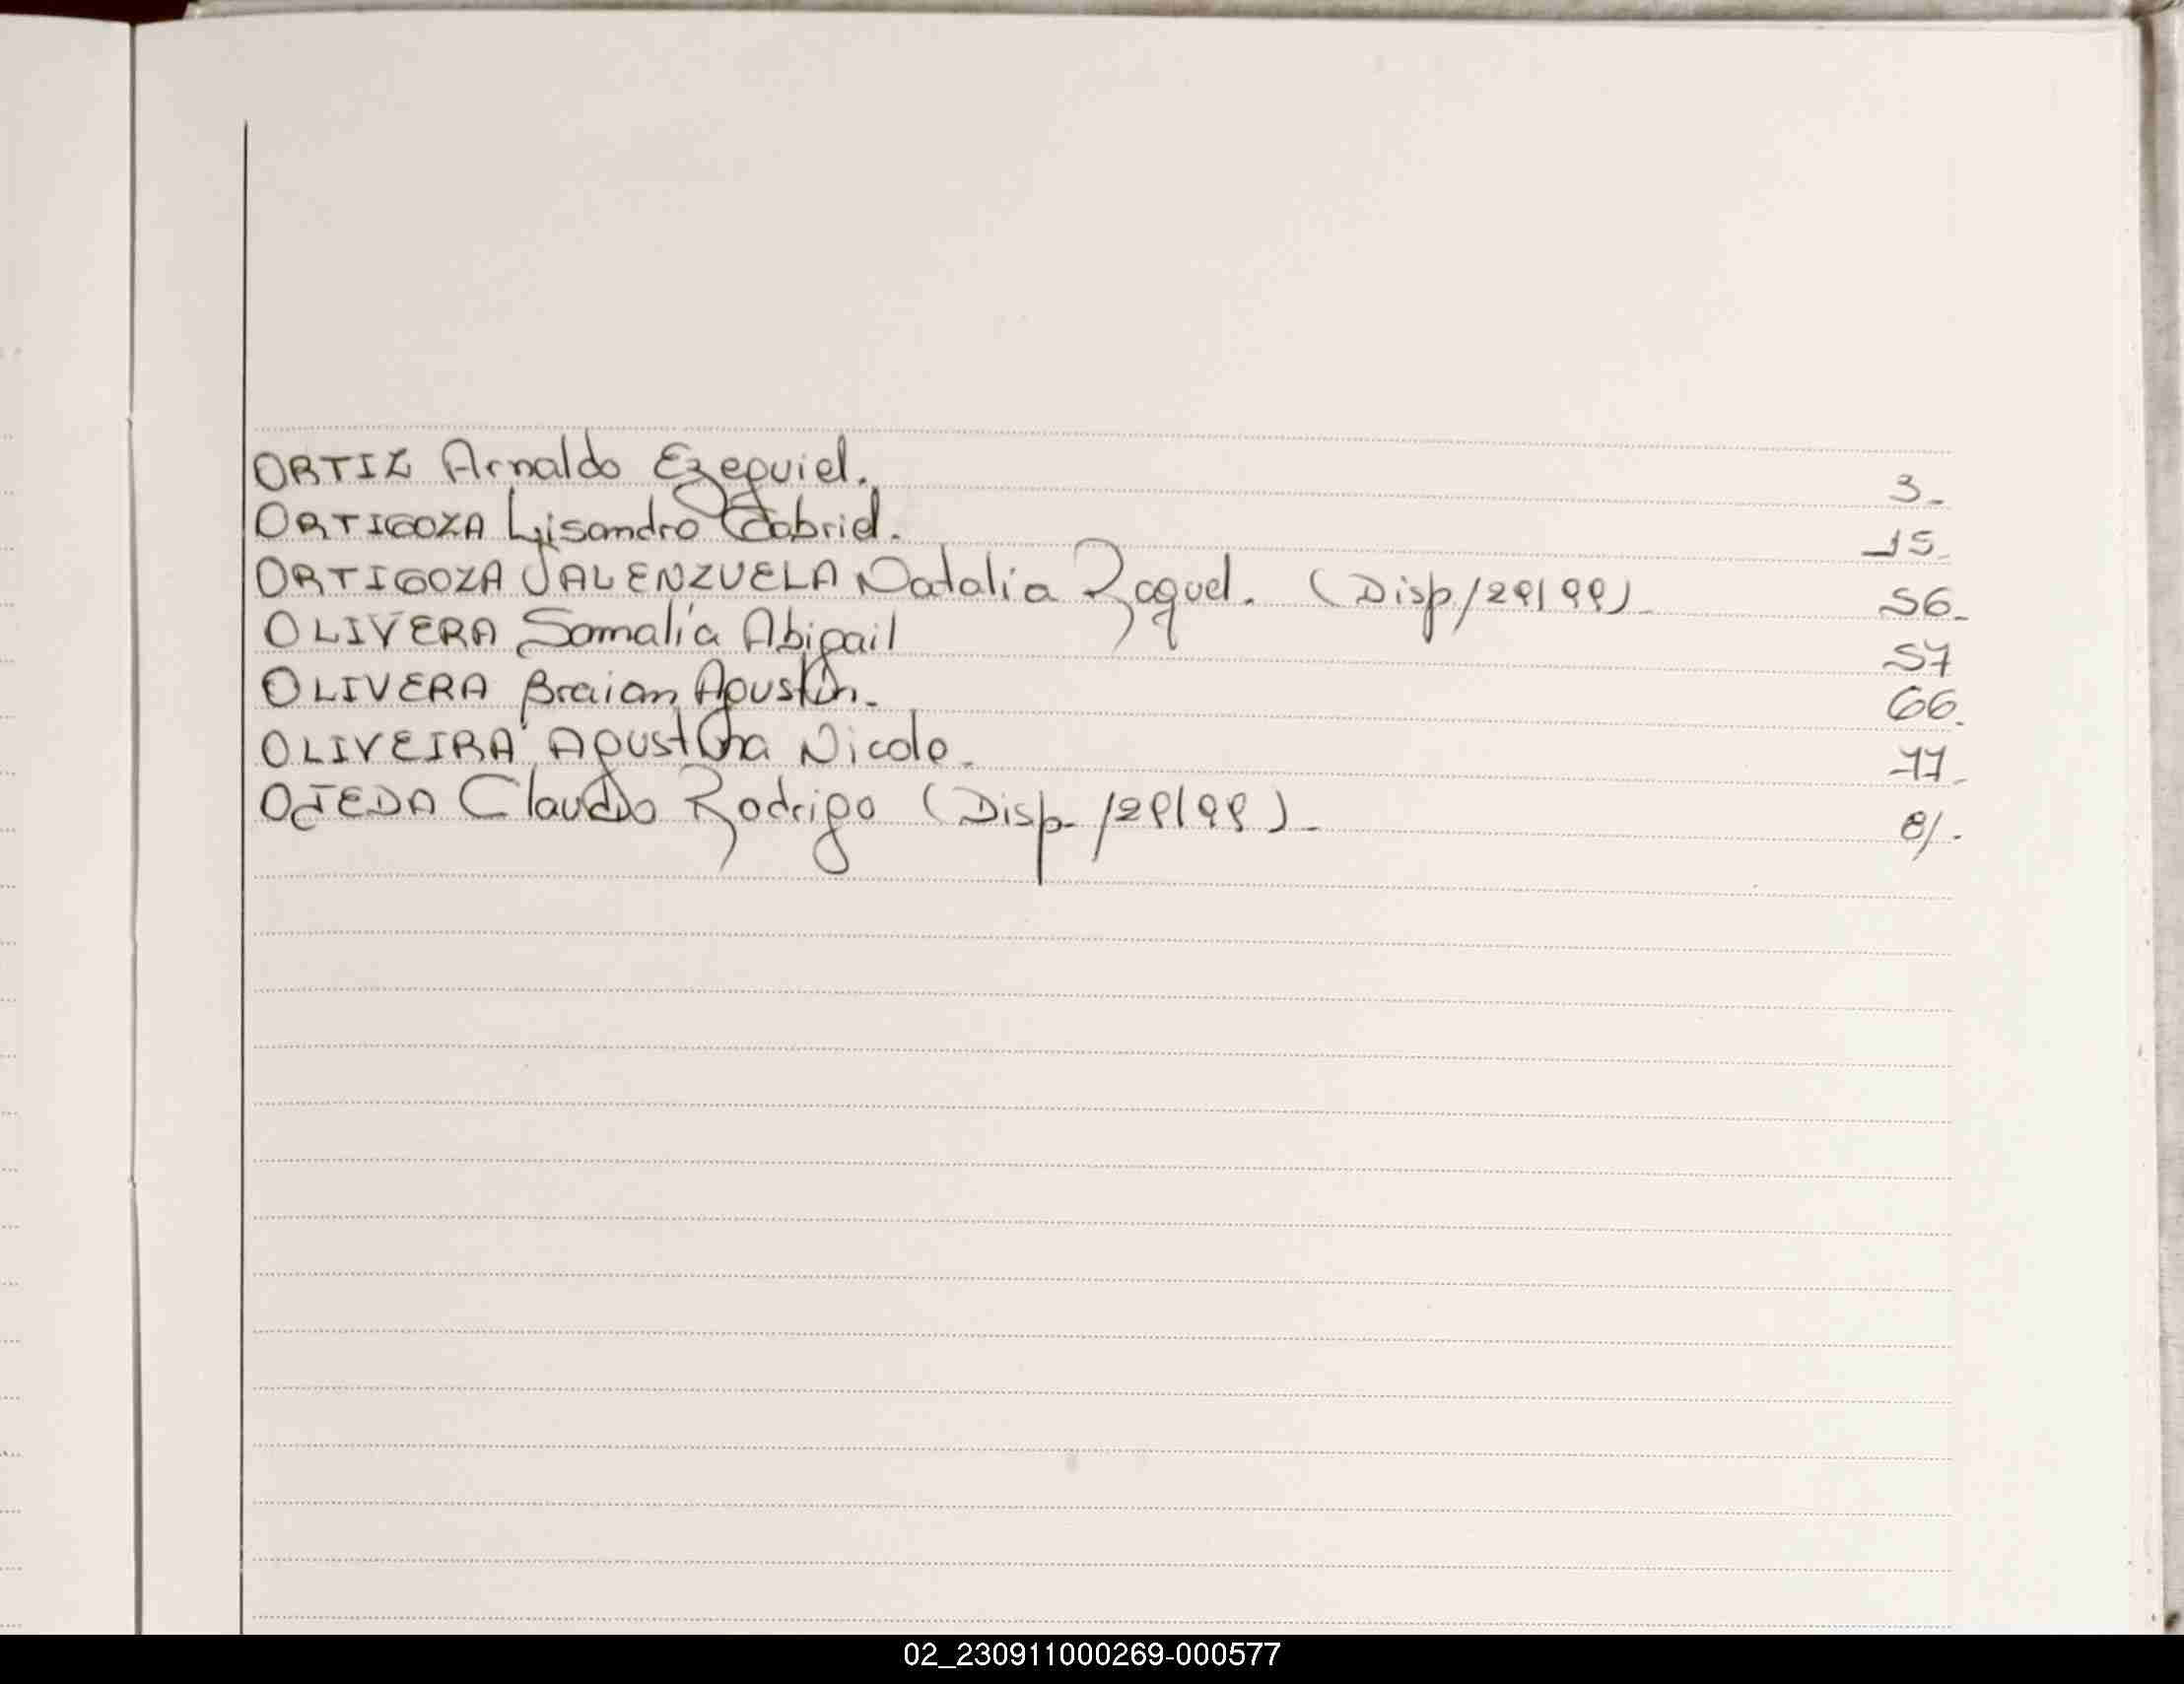 ORTIZ Arnaldo Ezequiel. 3-
ORTIGOZA Lisandro Gabriel. 15-
ORTIGOZA VALENZUELA Natalia Raquel. (Disp/29/99)- 56-
OLIVERA Somalía Abigail 57
OLIVERA Braian Agustín- 66.
OLIVEIRA Agustina Nicole- 77-
OJEDA Claudio Rodrigo (Disp-/29/99)-
02_230911000269-000577